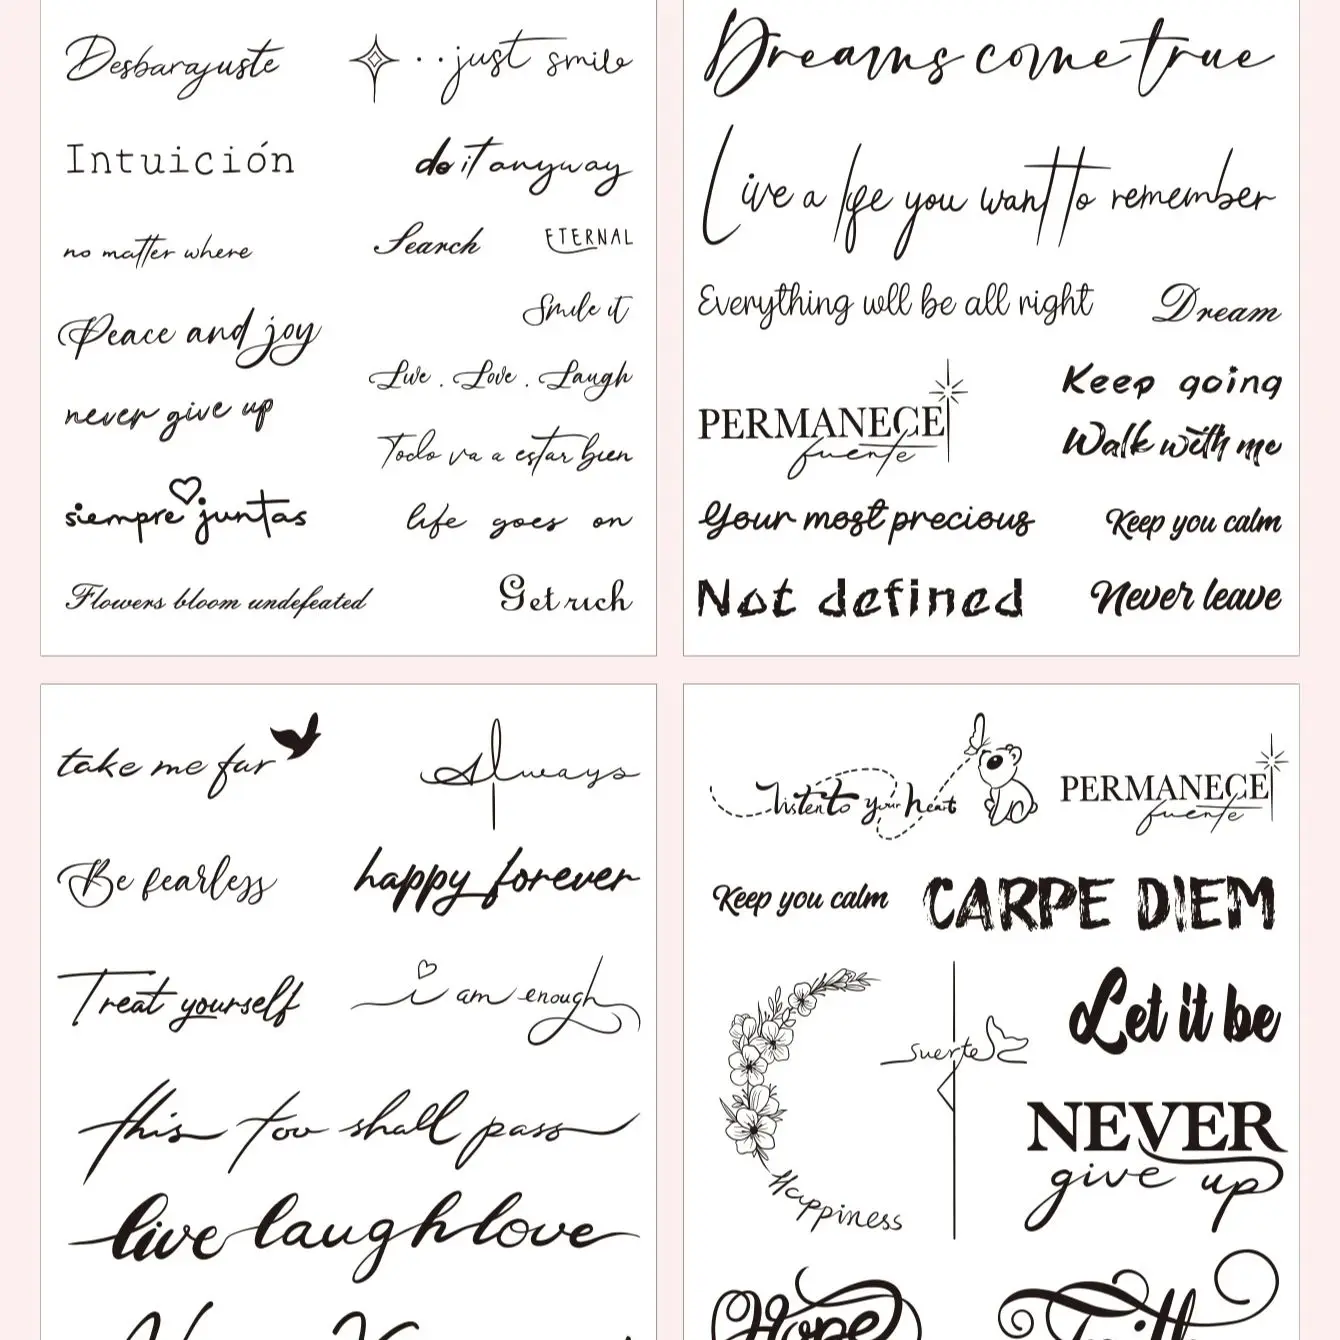 Desbarajuste
just smile
Intuición
do it anyway
no matter where
Search
ETERNAL
Smile it
Peace and joy
Live . Love . Laugh
never give up
Todo va a estar bien
siempre juntas
life goes on
Flowers bloom undefeated
Get rich
Dreams come true
Live a life you want to remember
Everything will be all right
Dream
PERMANECE
fuerte
Keep going
Walk with me
Your most precious
Keep you calm
Not defined
Never leave
take me far
Always
Be fearless
happy forever
Treat yourself
i am enough
this too shall pass
live laugh love
listen to your heart
PERMANECE
fuerte
Keep you calm
CARPE DIEM
Let it be
suerte
NEVER
give up
Happiness
Hope
Faith